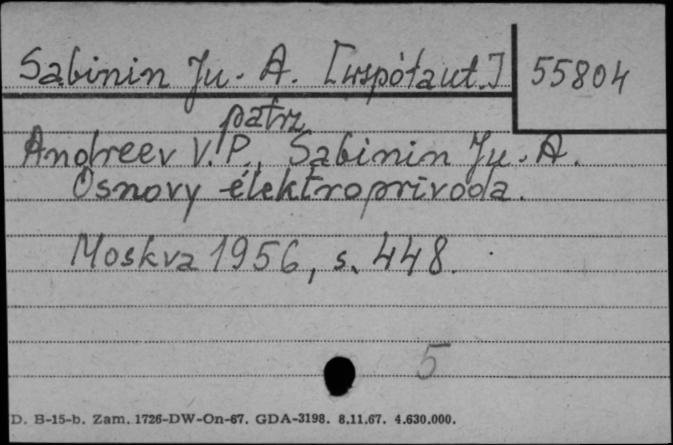 Sabinin Ju. A. [współaut.] 55804
patrz
Andreev V. P., Sabinin Ju. A.
Osnovy élektroprivoda.
Moskva 1956, s. 448.
5
D. B-15-b. Zam. 1726-DW-On-67. GDA-3198. 8.11.67. 4.630.000.